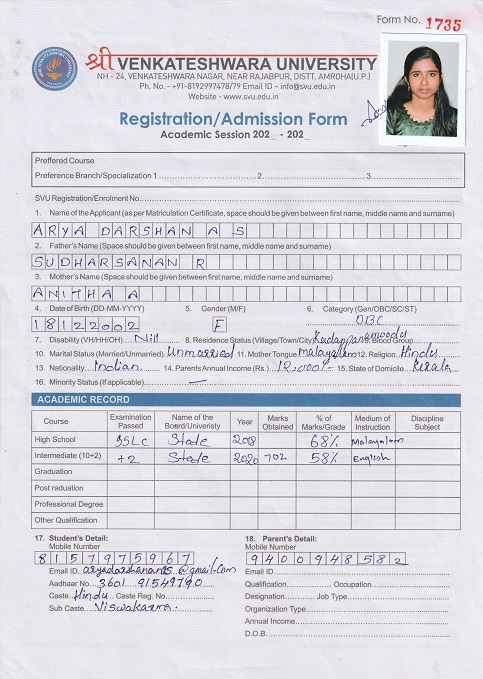 Form No. 1735
श्री VENKATESHWARA UNIVERSITY
NH - 24, VENKATESHWARA NAGAR, NEAR RAJABPUR, DISTT. AMROHA(U.P.)
Ph. No. - +91-8192997478/79 Email ID - info@svu.edu.in
Website - www.svu.edu.in
Registration/Admission Form
Academic Session 202_ - 202_
Preffered Course
Preference Branch/Specialization 1 2. 3.
SVU Registration/Enrolment No.
1. Name of the Applicant (as per Matriculation Certificate, space should be given between first name, middle name and surname)
ARYA DARSHAN A S
2. Father's Name (Space should be given between first name, middle name and surname)
SUDHARSANAN R
3. Mother's Name (Space should be given between first name, middle name and surname)
ANITHA A
4. Date of Birth (DD-MM-YYYY) 5. Gender (M/F) 6. Category (Gen/OBC/SC/ST)
18122002 F OBC
7. Disability (VH/HH/OH) Nill 8. Residence Status (Village/Town/City) 9. Blood Group
10. Marital Status (Married/Unmarried) Unmarried 11. Mother Tongue malayalam 12. Religion Hindu
13. Nationality Indian 14. Parents Annual Income (Rs.) 15. State of Domicile Kerala
16. Minority Status (If applicable) —
ACADEMIC RECORD
Course Examination Passed Name of the Board/Univeristy Year Marks Obtained % of Marks/Grade Medium of Instruction Discipline Subject
High School SSLC State 2018 68% Malayalam
Intermediate (10+2) +2 State 2020 702 58% English
Graduation
Post raduation
Professional Degree
Other Qualification
17. Student's Detail: 18. Parent's Detail:
Mobile Number Mobile Number
8157975967 9400948582
Email ID Email ID
Aadhaar No. 3601 91549790 Qualification Occupation
Caste Hindu Caste Reg. No. Designation Job Type
Sub Caste Viswakarma. Organization Type
Annual Income
D.O.B.